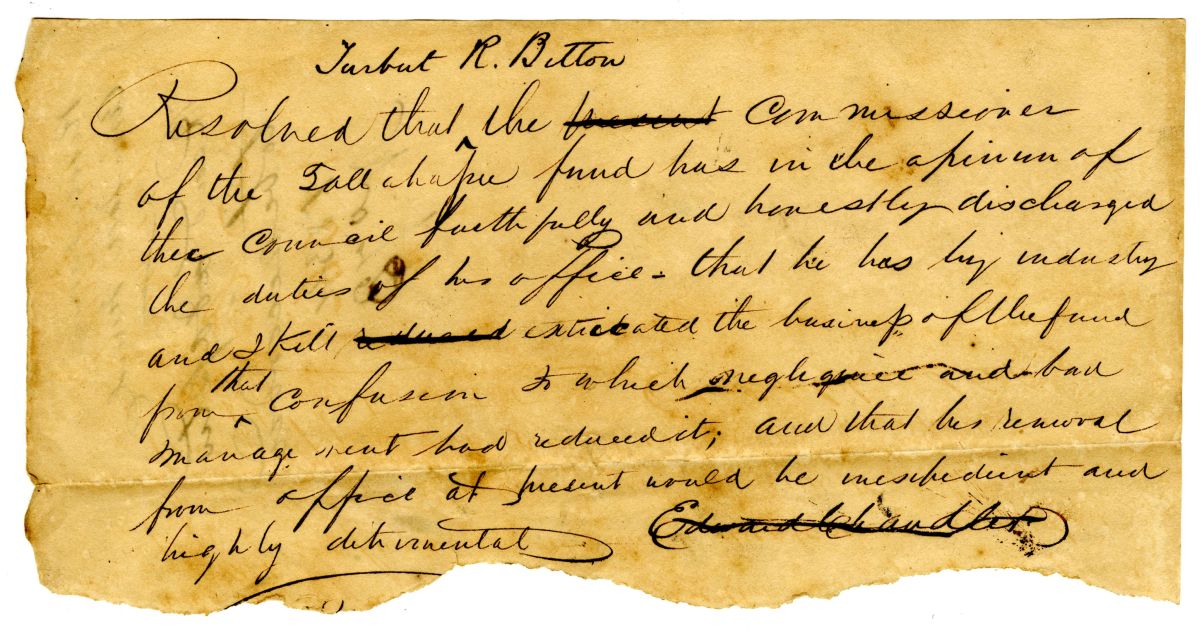 Turbut R. Betton
Resolved that ^ the present Commissioner
of the Tallahassee fund has in the opinion of
the Council faithfully and honestly discharged
the duties of his office - that he has by industry
and skill reduced extricated the business of the fund
that
from ^ confusion to which negligence and bad
management had reduced it; and that his removal
from office at present would be inexpedient and
highly detrimental Edward Chandler